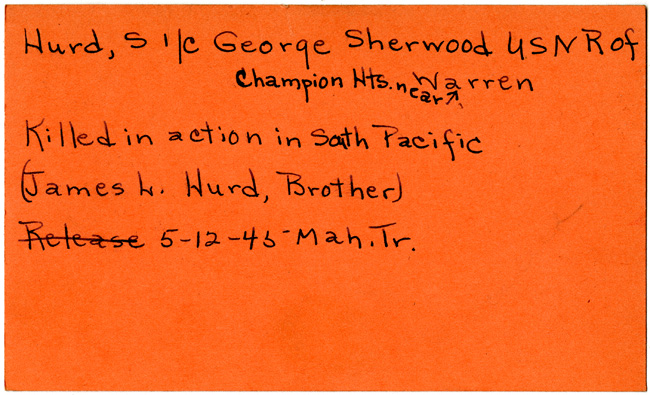 Hurd, S 1/c George Sherwood USNR of
Champion Hts. near Warren
Killed in action in South Pacific
(James L. Hurd, Brother)
Release 5-12-45-Mah. Tr.